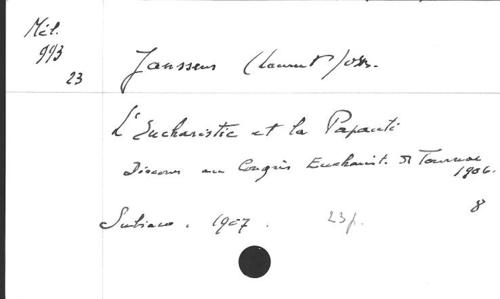 Mél.
993
23
Janssens (Laurent) osb.
L'Eucharistie et la Papauté
Discours au Congrès Eucharist. de Tournai
1906.
8
Subiaco. 1907. 23p.